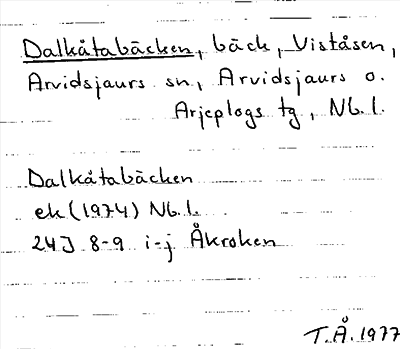 Dalkåtabäcken, bäck, Viståsen,
Arvidsjaurs sn, Arvidsjaurs o.
Arjeplogs tg, Nb. l.
Dalkåtabäcken
ek (1974) Nb. l.
24J 8-9 i-j Åkroken
T.Å. 1977